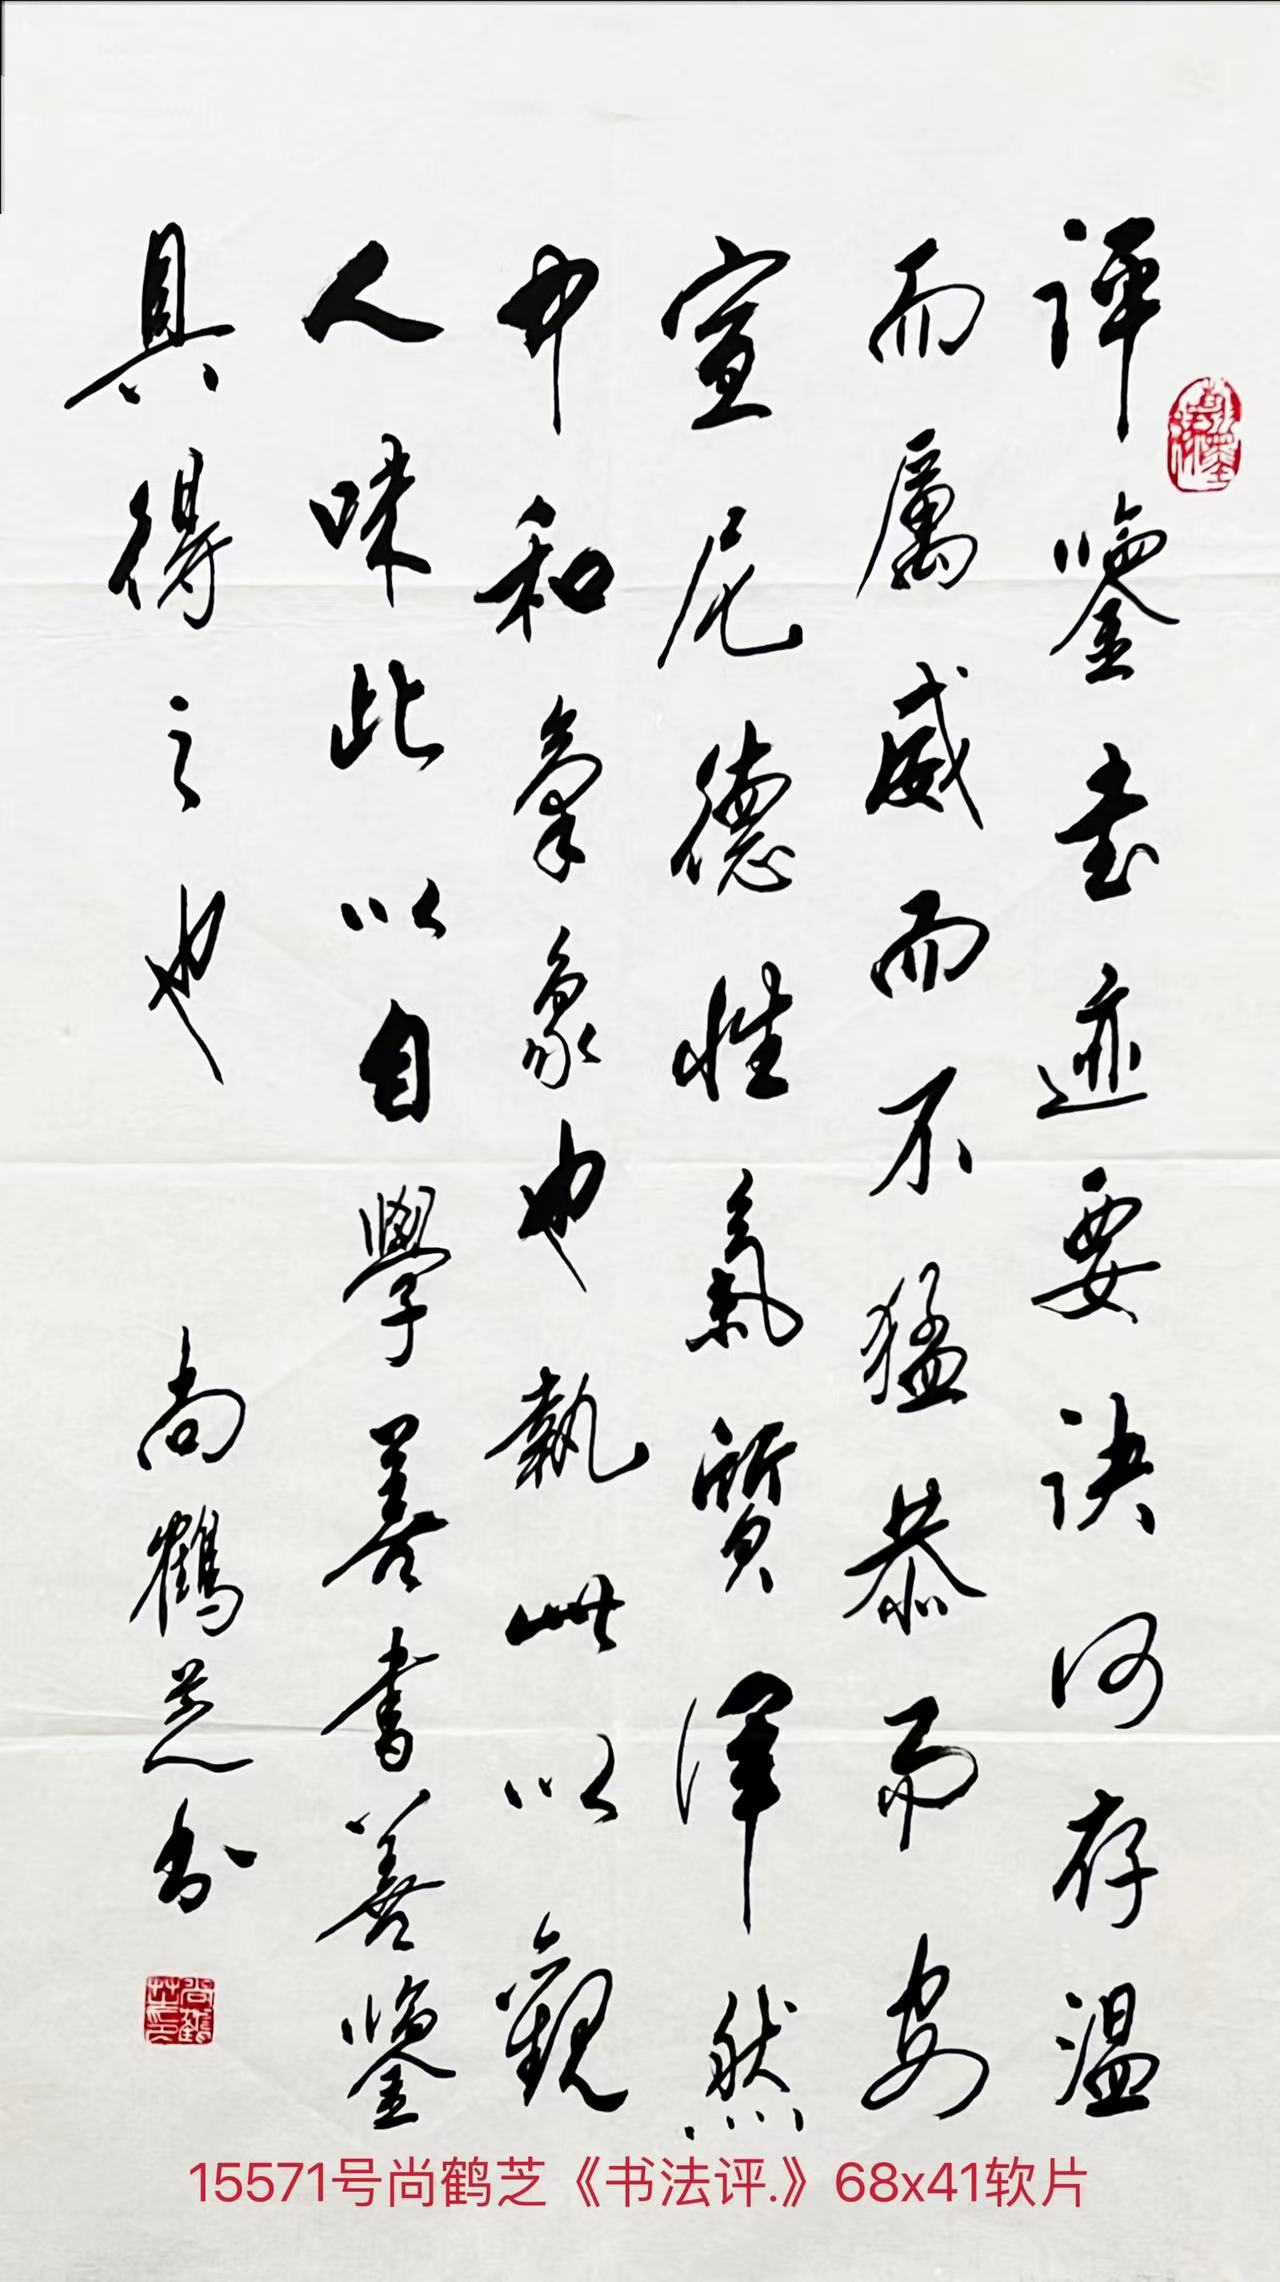 评鉴书迹要诀何存温
而厲威而不猛恭而安
宣尼德性氣質浑然
中和氣象也執此以觀
人味此以自學善書善鉴
具得之也
尚鶴芝书
尚鶴芝印
15571号尚鹤芝《书法评.》68x41软片